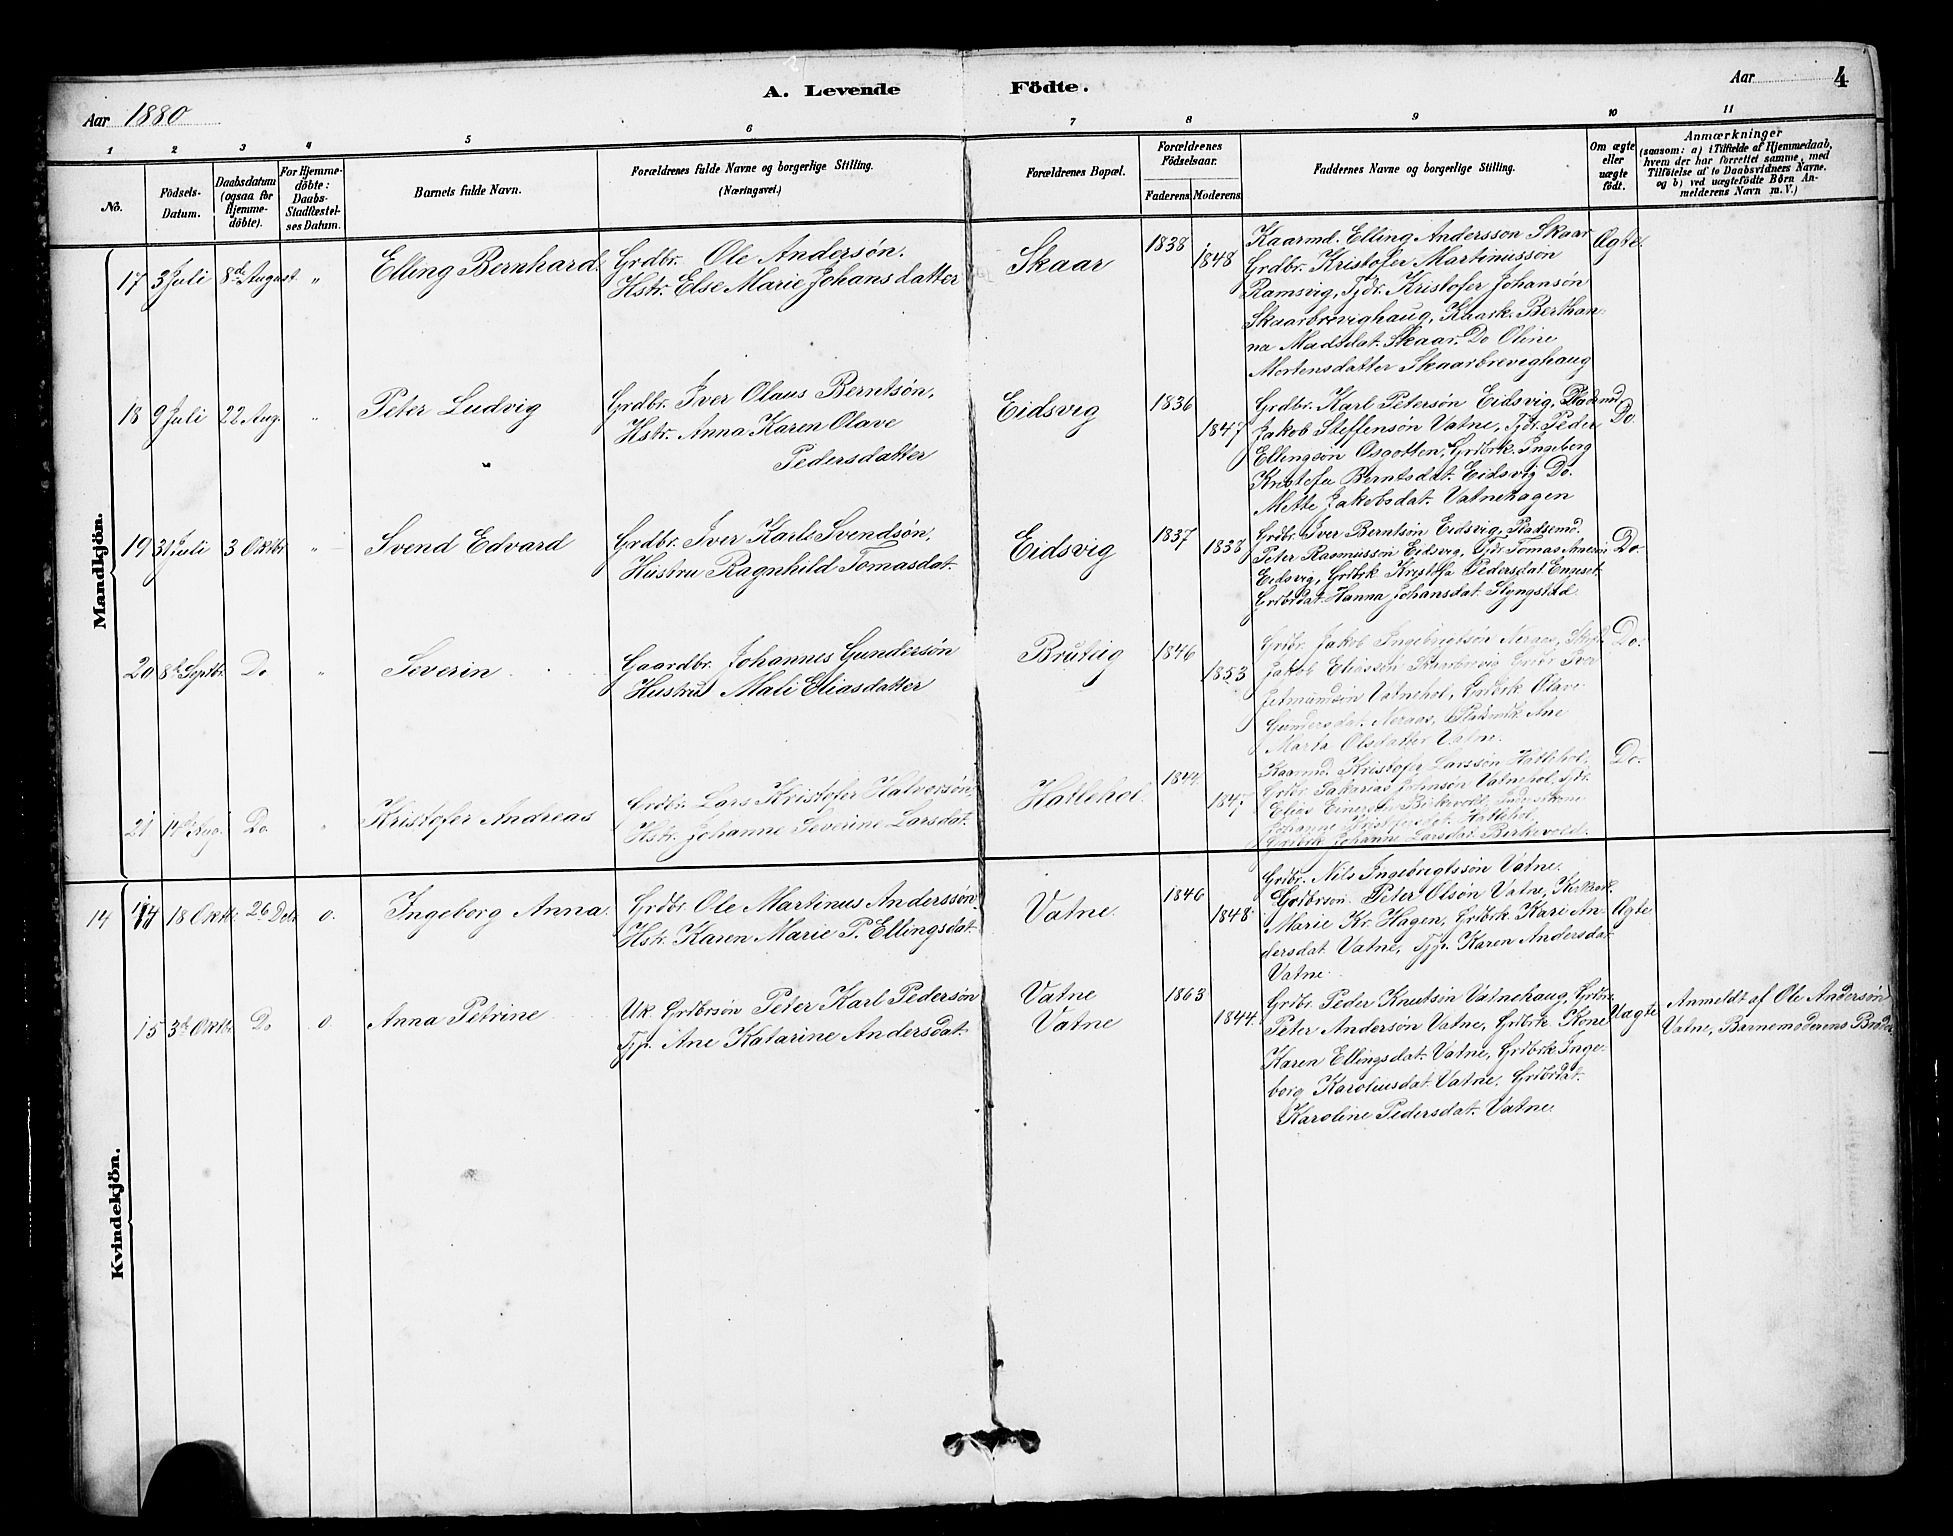 Aar 1880
A. Levende Födte.
Aar 4
1 2 3 4 5 6 7 8 9 10 11
No.
Födsels-Datum.
Daabsdatum (ogsaa for Hjemme-döbte).
For Hjemme-döbte: Daabs-Stadfæstel-ses Datum.
Barnets fulde Navn.
Forældrenes fulde Navne og borgerlige Stilling.
(Næringsvei.)
Forældrenes Bopæl.
Forældrenes Födselsaar.
Faderens. Moderens.
Faddernes Navne og borgerlige Stilling.
Om ægte eller uægte födt.
Anmærkninger
(saasom: a) i Tilfælde af Hjemmedaab,
hvem der har forrettet samme, med
Tilföielse af to Daabsvidners Navne,
og b) ved uægtefödte Börn An-
melderens Navn m. V.)
Mandkjön.
17 3 Juli 8de August " Elling Bernhard.
Grdbr. Ole Andersøn.
Hstr. Else Marie Johansdatter
Skaar 1838 1848
Kaarmd. Elling Andersson Skaar
Grdbr. Kristofer Martinussøn
Ramsvig, Tjdr. Kristofer Johansøn
Skaarbrevighaug, Kaark. Berthan-
na Madsdat. Skaar. Do Oline
Mortensdatter Skaarbrevighaug
Ægte
18 9 Juli 22 Aug. " Peter Ludvig
Grdbr. Iver Olaus Berntsøn,
Hstr. Anna Karen Olave
Pedersdatter
Eidsvig 1836 1847
Grdbr. Karl Petersøn Eidsvig, Pladsmd,
Jakob Steffensøn Vatne, Tjdr. Peder
Ellingsøn Osgotten, Grdbrk. Ingeberg
Kristofa Berntsdat. Eidsvig Do.
Mette Jakobsdat. Vatnehagen
Do.
19 31 Juli 3 Oktbr " Svend Edvard
Grdbr. Iver Karl Svendsøn,
Hustru Ragnhild Tomasdat.
Eidsvig 1837 1838
Grdbr. Iver Berntsøn Eidsvig, Pladsmd.
Peter Rasmussøn Eidsvig, Tjdr. Tomas
Eidsvig, Grdbrk Kristofa Pedersdat. Enneset.
Grdbrdat. Hanna Johansdat. Slyngstad
Do.
20 8de Septbr. Do " Severin
Gaardbr. Johannes Gundersøn
Hustru Mali Eliasdatter
1846 1853
Grdbr. Jakob Ingebrigtsøn Neraas,
Jakob Eliassøn Skaarbrevig Grdbr Iver
Jetmundsøn Vatnehol, Grdbrk Olave
Gundersdat. Neraas, Pladsmdk. Ane
Marta Olsdatter Vatne.
Do.
21 14de Aug. Do. " Kristofer Andreas
Grdbr. Lars Kristofer Halversøn,
Hstr. Johanne Severine Larsdat.
Hatlehol. 1844. 1847
Kaarmd. Kristofer Larssøn Hatlehol,
Grdbr. Sakarias Johnsøn Vatnehol,
Elias Birkevold,
Hatlehol,
Grdbrk. Johanne Larsdat. Birkevold.
Do.
Kvindekjön.
14 14 18 Oktbr. 26 Dcbr o. Ingeborg Anna.
Grdbr Ole Martinus Anderssøn.
Hstr. Karen Marie P. Ellingsdat.
Vatne. 1846 1848
Grdbr. Nils Ingebregtssøn Vatne.
Grdbrsøn. Peter Olsøn Vatne,
Marie Kr. Hagen, Grdbrk. Kari An-
dersdat Vatne, Tjp. Karen Andersdat.
Vatne.
Ægte
15 3de Oktbr. Do o Anna Petrine
Uk. Grdbrsøn Peter Karl Pedersøn
Tjp. Ane Katarine Andersdat.
Vatne
Vatne
1863 1844.
Grdbr. Peder Knutsøn Vatnehaug, Grdbr.
Peter Andersøn Vatne, Grdbrk. Kone
Karen Ellingsdat. Vatne, Grdbrk. Inge-
borg Karolusdat. Vatne. Grdbrdat.
Karoline Pedersdat. Vatne.
Uægte
Anmeldt af Ole Andersøn
Vatne, Barnemoderens Broder.